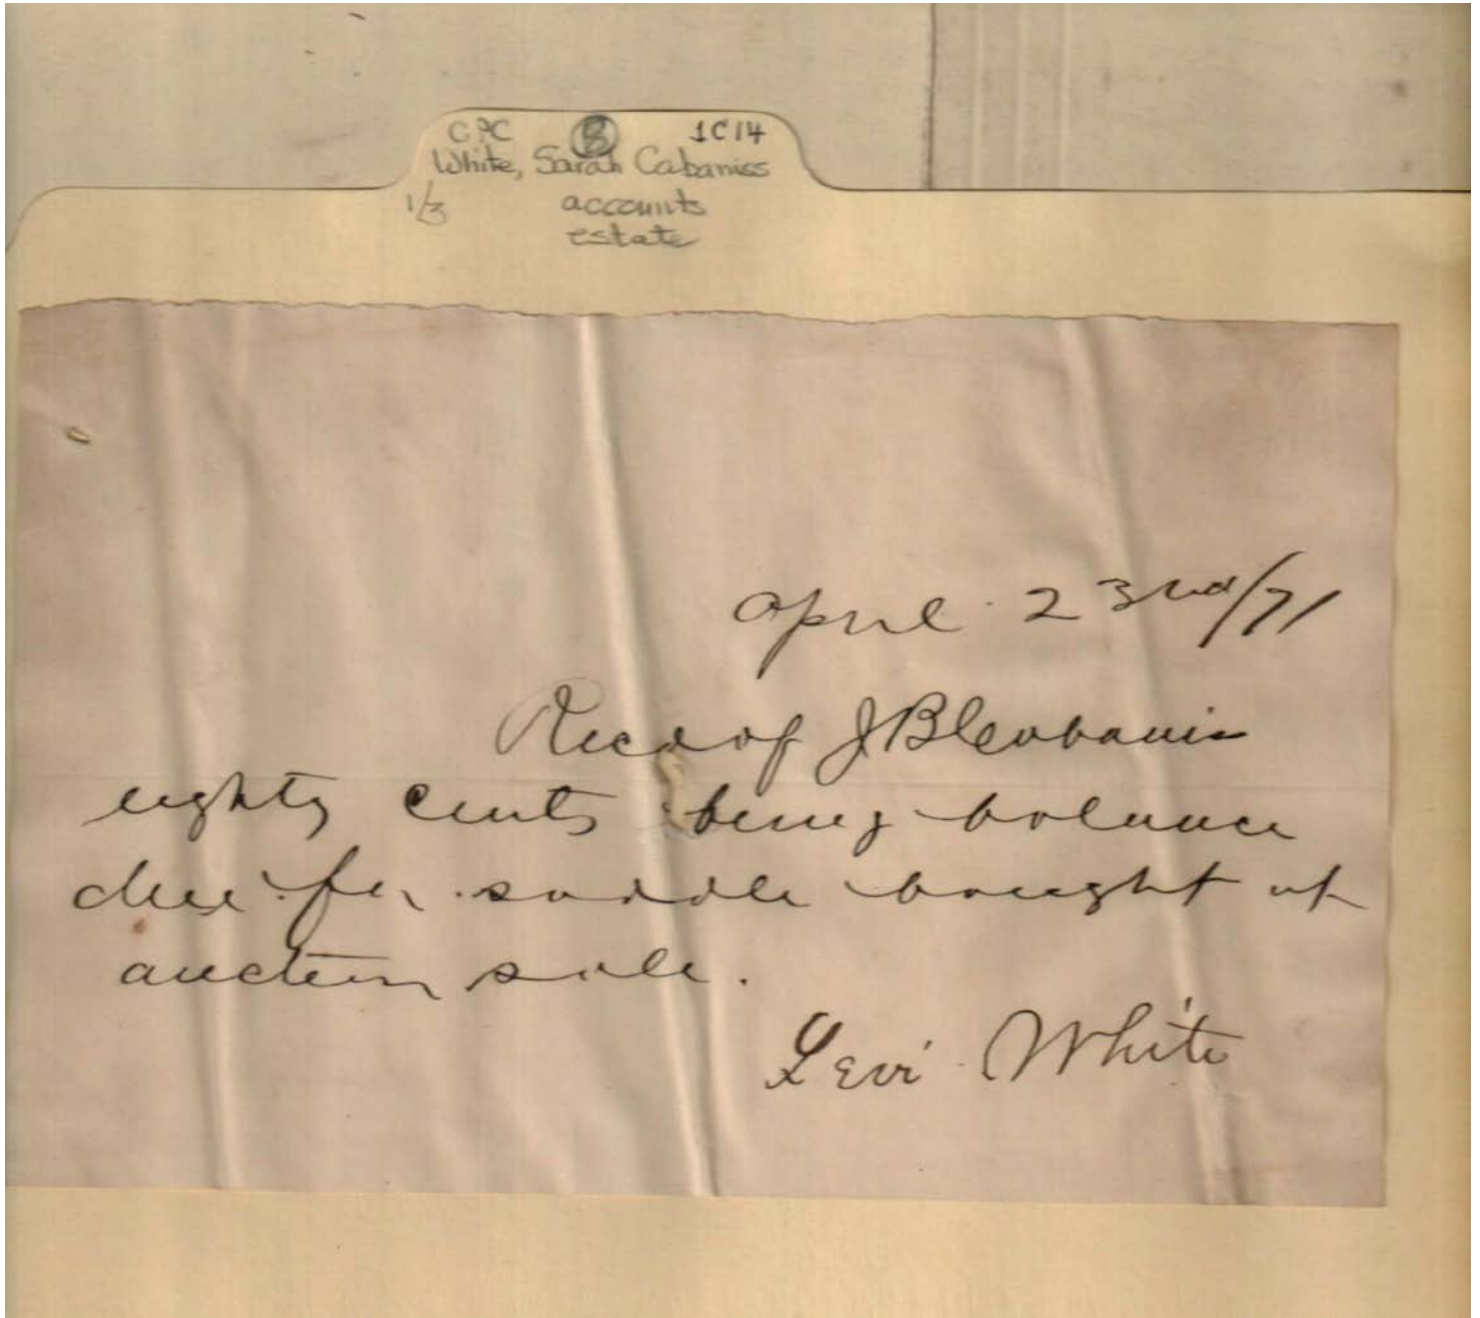 CPC 8 1C14
White, Sarah Cabaniss
1/3 accounts
estate
April 23rd/71
Recd of J B Cabanis
eighty cents being balance
due for saddle bought at
auction sale.
Levi White